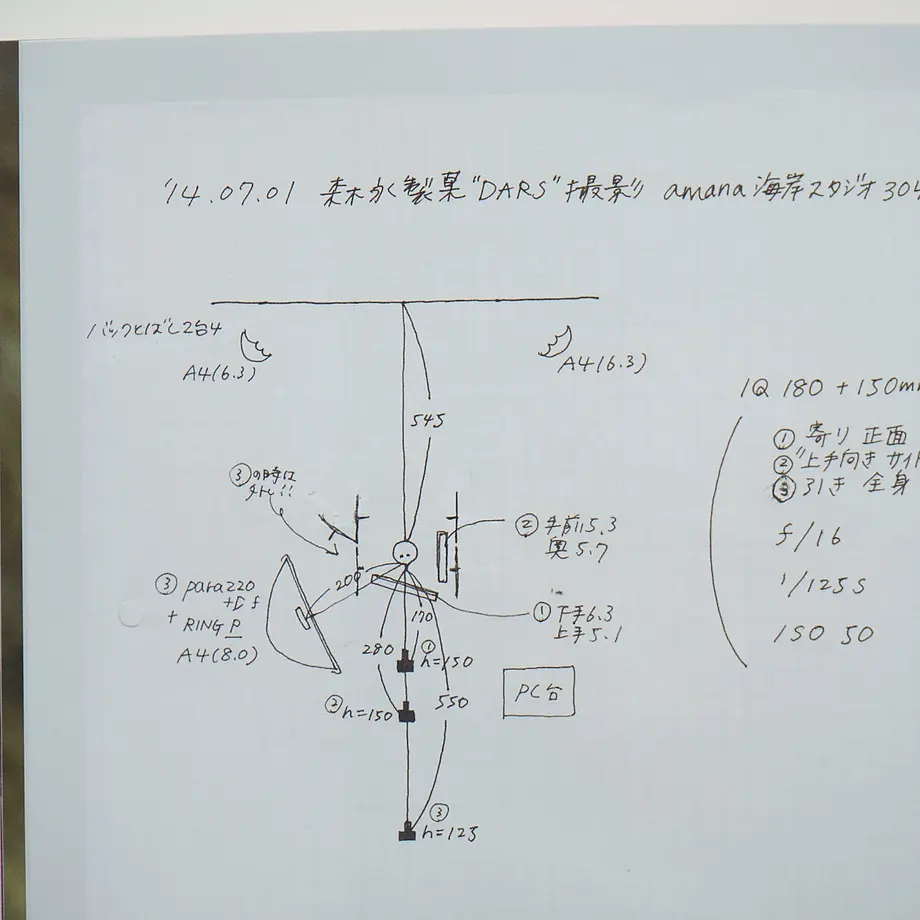 '14.07.01 森永製菓"DARS"撮影 amana 海岸スタジオ 304
バックとばし2台4
A4(6.3)
A4(6.3)
545
IQ 180 + 150mm
① 寄り 正面
② 上手向き サイド
③ 引き 全身
f/16
1/125s
ISO 50
③の時は
② 手前15.3
奥5.7
③ para220
+Df
+
RING P
A4(8.0)
200
① 下手6.3
上手5.1
170
280
① h=150
550
PC台
② h=150
③
h=125